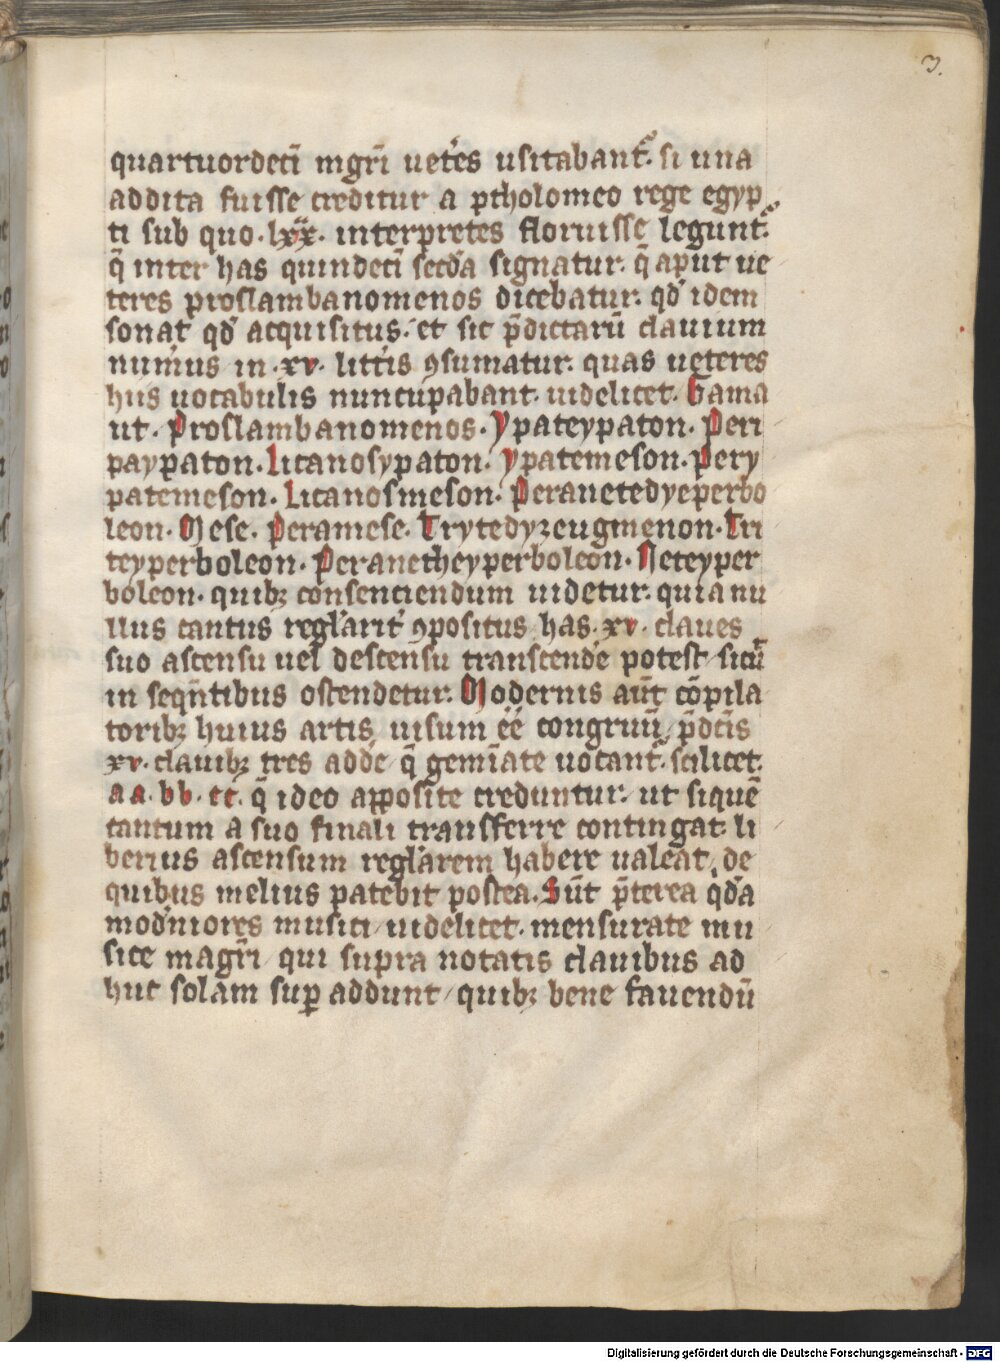 3.
quartuordeci̅ mgr̅i uete̅s usitabant̉. si una
addita fuisse creditur a ptholomeo rege egyp
ti sub quo. lxx. interpretes floruisse legunt̉.
q̅ inter has quindeci̅ sec̅da signatur. q̅ aput ue
teres proslambanomenos dicebatur. qd̕ idem
sonat qd̕ acquisitus. et sic p̅dictaru̅ clauium
num̅us in .xv. litt̅is ꝯsumatur. quas ueteres
hiis uocabulis nuncupabant. uidelicet. Gama
ut. Proslambanomenos. Ypateypaton. Peri
paypaton. Licanosypaton. Ypatemeson. Pery
patemeson. Licanosmeson. Peranetedyeperbo
leon. Mese. Peramese. Trytedyzeugmenon. Tri
teyperboleon. Peranetheyperboleon. Neteyper
boleon. quibꝫ consenciendum uidetur. quia nu
llus cantus regl̕arit̉ ꝯpositus has .xv. claues
suo ascensu uel descensu transcende̅ potest / sicu̅
in seqn̅tibus ostendetur. Modernis aut̅ co̅pila
toribꝫ huius artis uisum ee̅ congruu̅ / p̅dc̅is
xv. clauibꝫ tres adde̅ q̅ gemi̅ate uocant̉. scilicet.
aa. bb. cc. q̅ ideo apposite creduntur. ut sique̅
cantum a suo finali transferre contingat. li
berius ascensum regl̕arem habere ualeat / de
quibus melius patebit postea. Su̅t p̅terea qd̕a
mod̕niores musici / uidelicet. mensurate mu
sice magr̅i / qui supra notatis clauibus ad
huc solam suꝑ addunt / quibꝫ bene fauendu̅
Digitalisierung gefördert durch die Deutsche Forschungsgemeinschaft - DFG